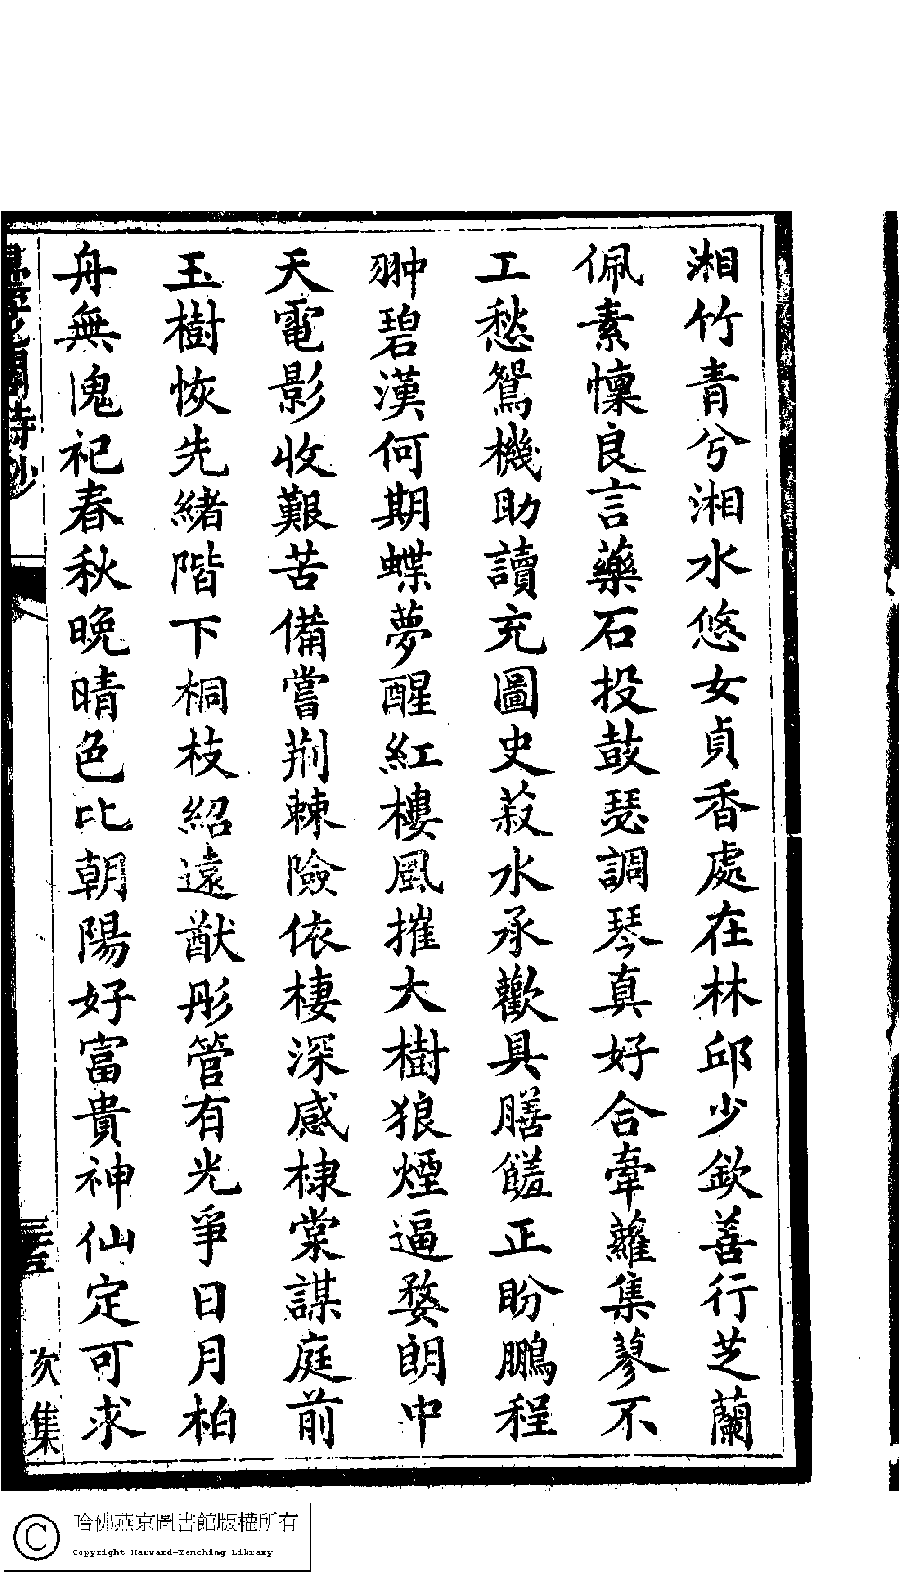 湘竹青兮湘水悠女貞香處在林邱少欽善行芝蘭
佩素懷良言藥石投鼓瑟調琴真好合牽蘿集蓼不
工愁鴛機助讀充圖史菽水承歡具膳饈正盼鵬程
翀碧漢何期蝶夢醒紅樓風摧大樹狼煙逼婺朗中
天電影收艱苦備嘗荆棘險依棲深感棣棠謀庭前
玉樹恢先緒階下桐枝紹遠猷彤管有光爭日月柏
舟無愧祀春秋晩晴色比朝陽好富貴神仙定可求
詩鈔
三五
次集
哈佛燕京圖書館版權所有
Copyright Harvard-Yenching Library